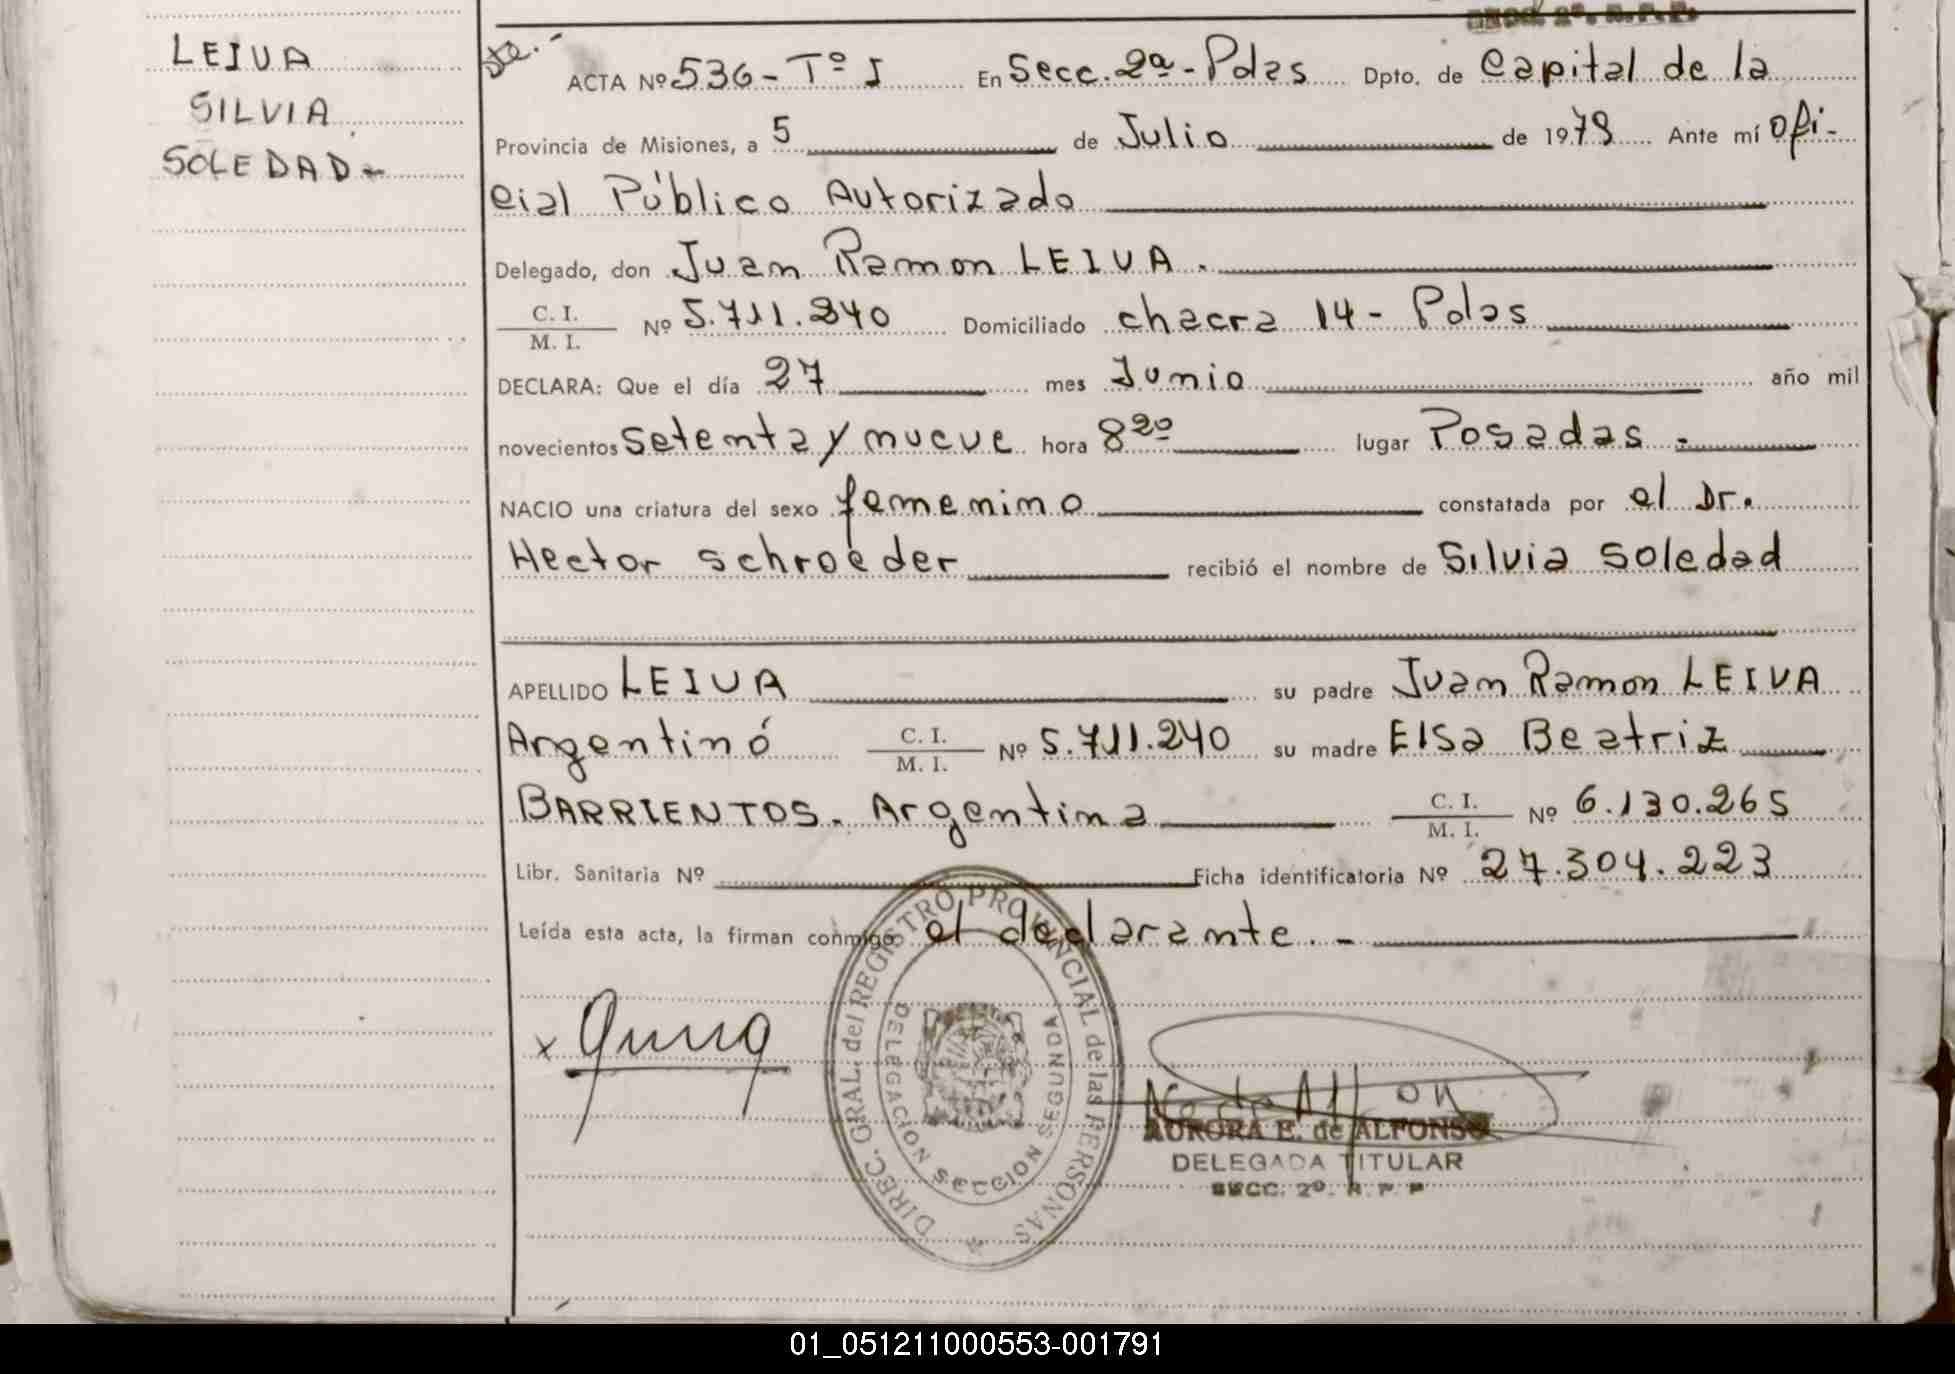 LEIVA
SILVIA
SOLEDAD-
SECC. 2º. R.P.P.
Dte.-
ACTA Nº 536 - Tº I En Secc. 2ª - Pdas Dpto. de Capital de la
Provincia de Misiones, a 5 de Julio de 1979 Ante mí Ofi-
cial Público Autorizado
Delegado, don Juan Ramon LEIVA.
C. I.
M. I. Nº 5.711.240 Domiciliado chacra 14 - Pdas
DECLARA: Que el día 27 mes Junio año mil
novecientos setenta y nueve hora 8 20 lugar Posadas -
NACIO una criatura del sexo femenino constatada por el Dr.
Hector Schroeder recibió el nombre de Silvia Soledad
APELLIDO LEIVA su padre Juan Ramon LEIVA
Argentino C. I.
M. I. Nº 5.711.240 su madre Elsa Beatriz
BARRIENTOS. Argentina C. I.
M. I. Nº 6.130.265
Libr. Sanitaria Nº Ficha identificatoria Nº 27.304.223
Leída esta acta, la firman conmigo el declarante. -
x
DIREC. GRAL. del REGISTRO PROVINCIAL de las PERSONAS
DELEGACION SECCION SEGUNDA
AURORA E. de ALFONSO
DELEGADA TITULAR
SECC. 2º. R P P
01_051211000553-001791